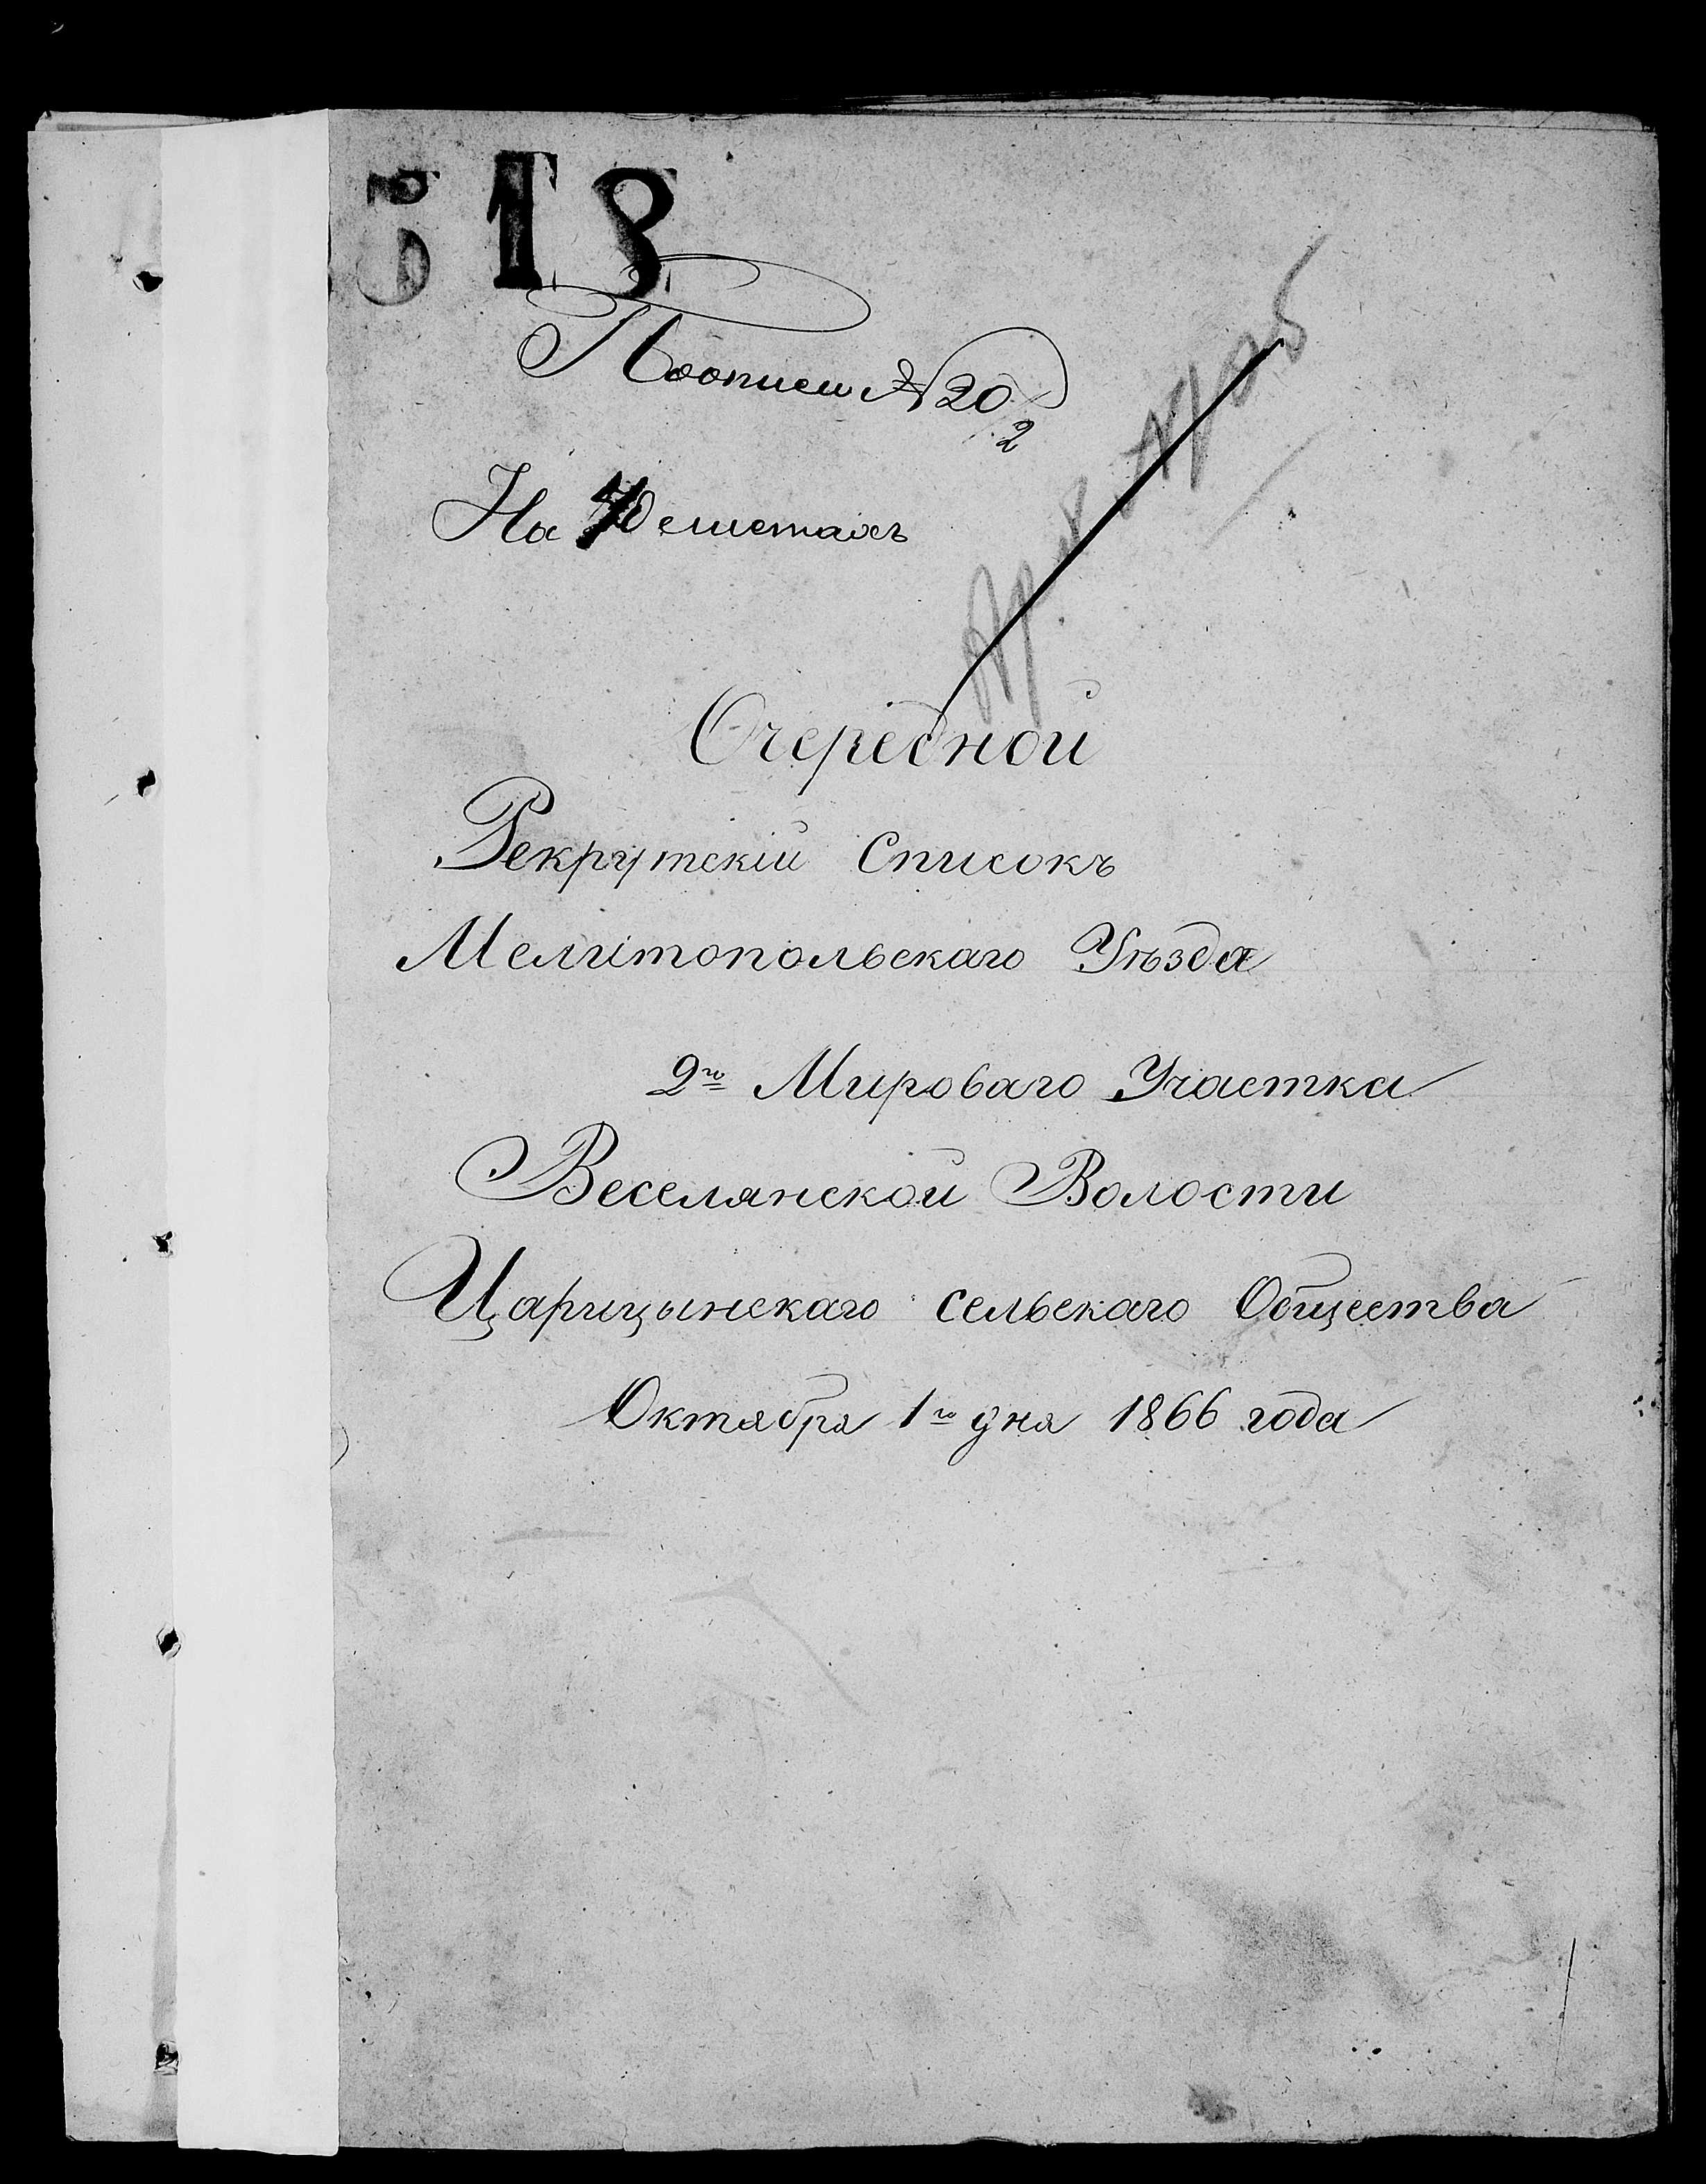 518
По описи № 20/2
На листахъ
Очередной
Рекрутскій Списокъ
Мелитопольскаго Уѣзда
2го Мироваго Участка
Веселянской Волости
Царицынскаго сельскаго Общества
Октября 1го дня 1866 года